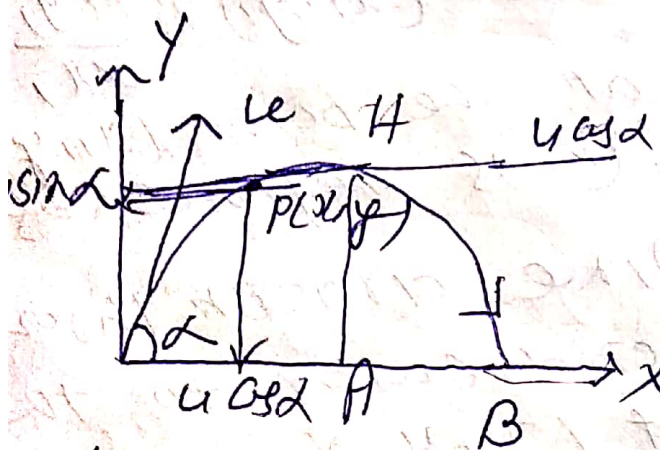 Y
u
H
u cosα
sinα
P(x,y)
α
u cosα
A
X
B